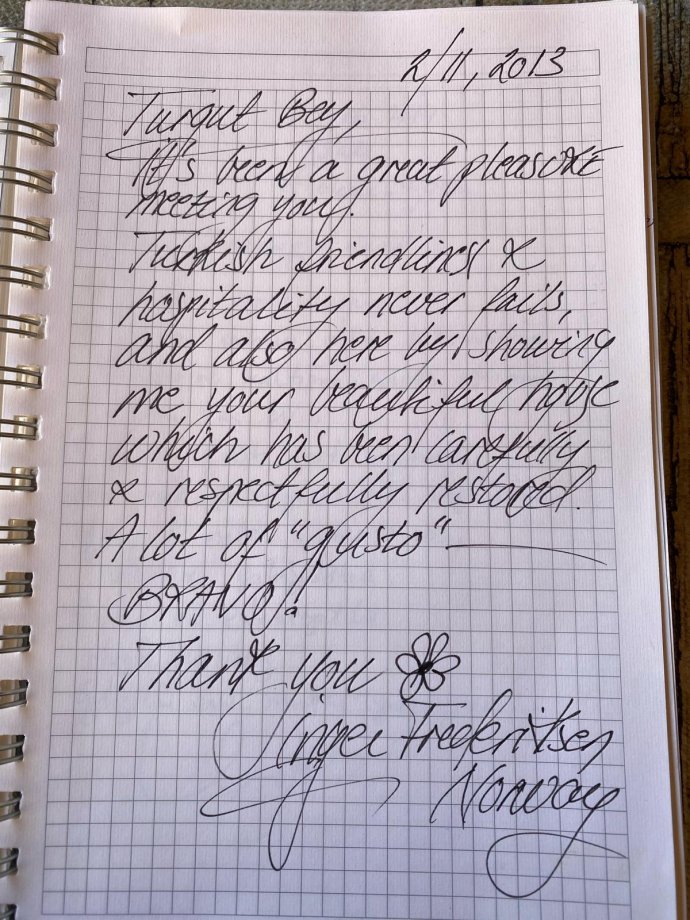 2/11, 2013
Turgut Bey,
It's been a great pleasure
meeting you.
Turkish friendliness &
hospitality never fails,
and also here by showing
me your beautiful house
which has been carefully
& respectfully restored.
A lot of "gusto"—
BRAVO!
Thank you
Inger Frederiksen
Norway